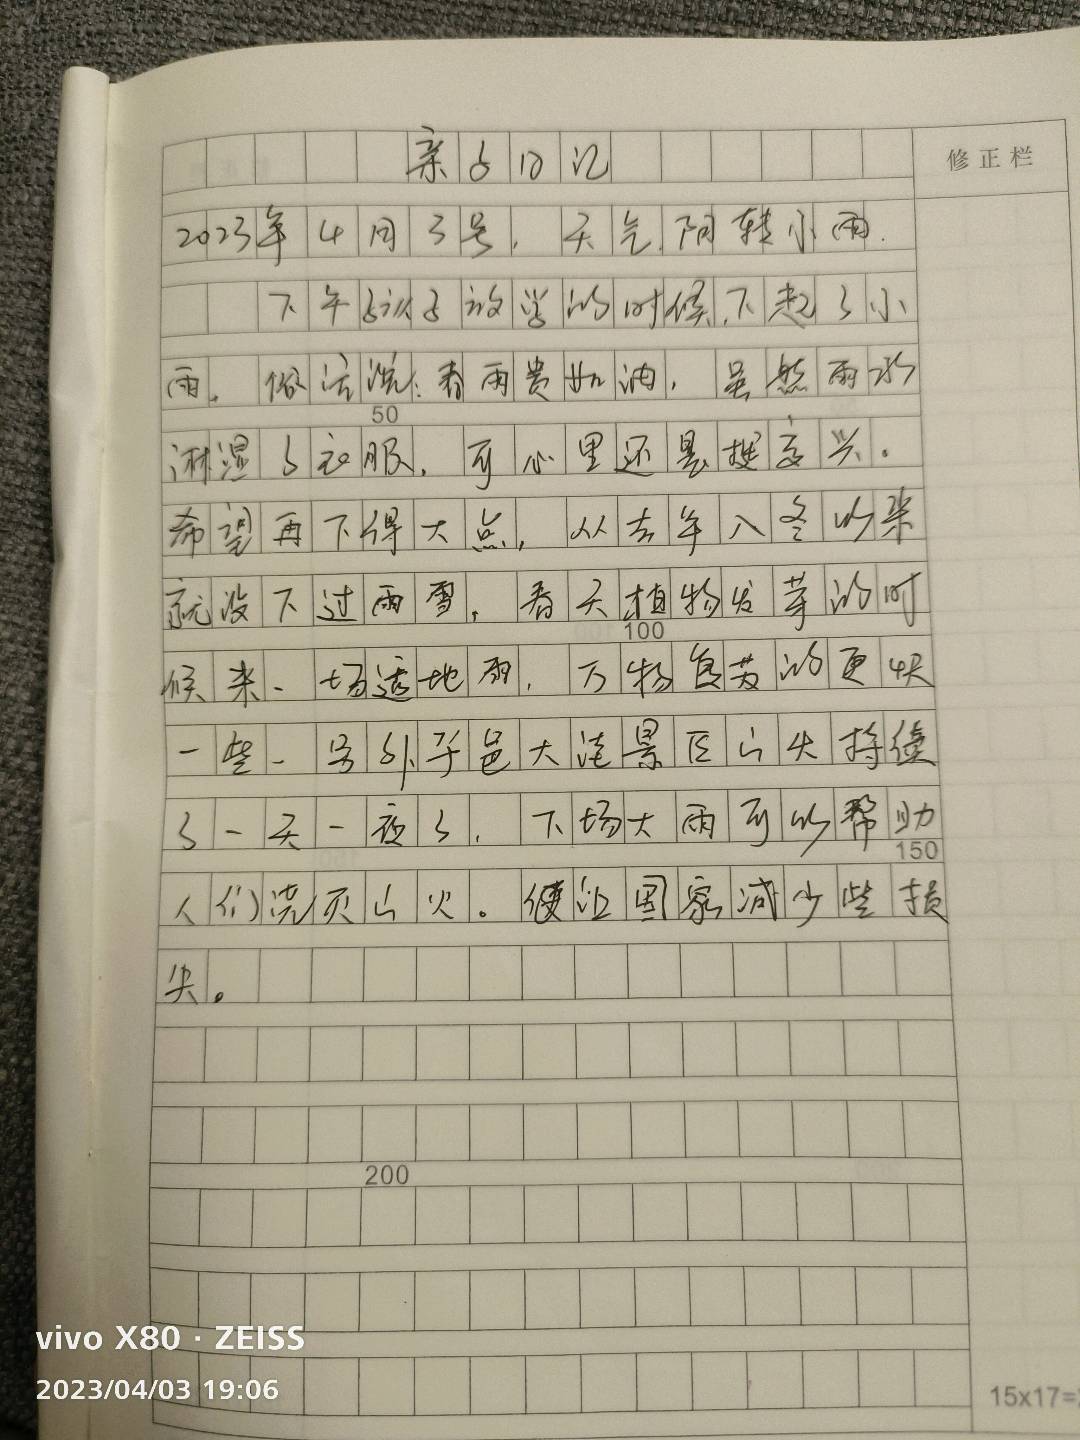 亲子日记
修正栏
2023年4月3号，天气阴转小雨.
下午孩子放学的时候,下起了小
雨。俗话说:春雨贵如油，虽然雨水
50
淋湿了衣服，可心里还是挺高兴。
希望再下得大点，从去年入冬以来
就没下过雨雪，春天植物发芽的时
100
候来一场透地雨，万物复苏的更快
一些。另外子邑大洼景区山火持续
了一天一夜了，下场大雨可以帮助
150
人们浇灭山火。便让国家减少些损
失。
200
15x17=
vivo X80 · ZEISS
2023/04/03 19:06